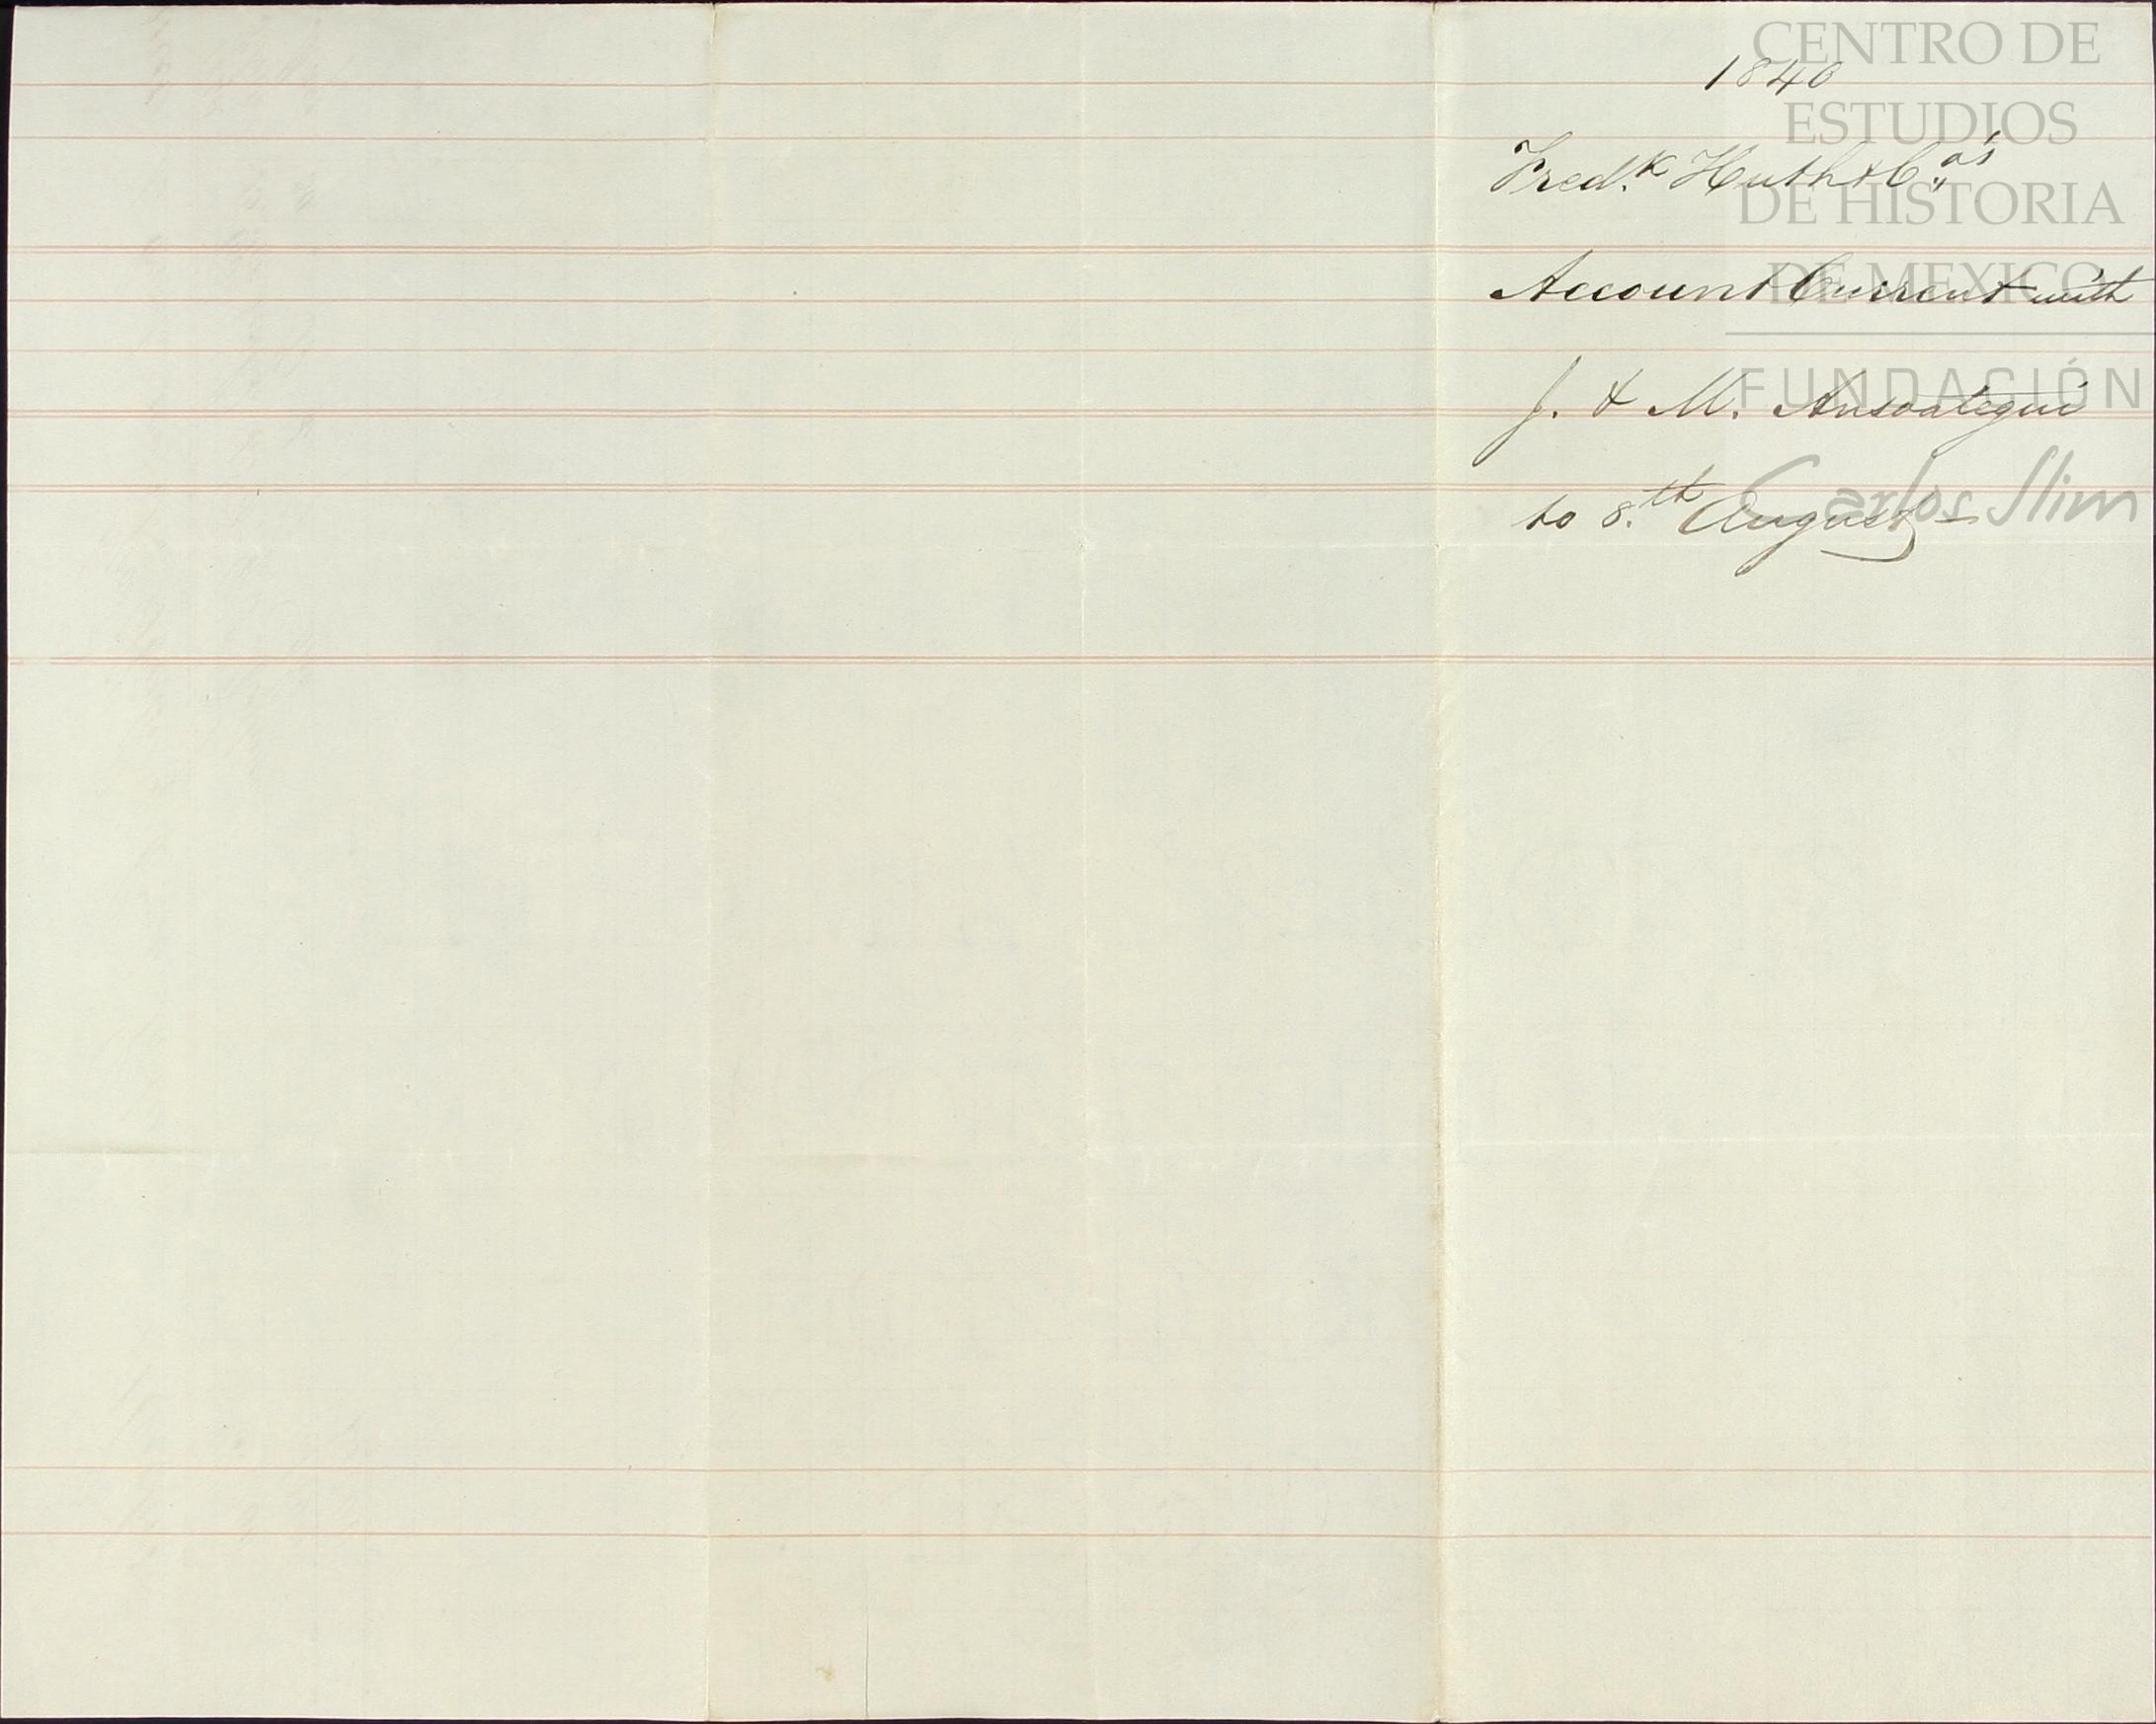 1840
Fred.k Huth & C.o's
Account Current with
J. & M. Ansoategui
to 8.th August –
CENTRO DE
ESTUDIOS
DE HISTORIA
DE MEXICO
FUNDACIÓN
Carlos Slim